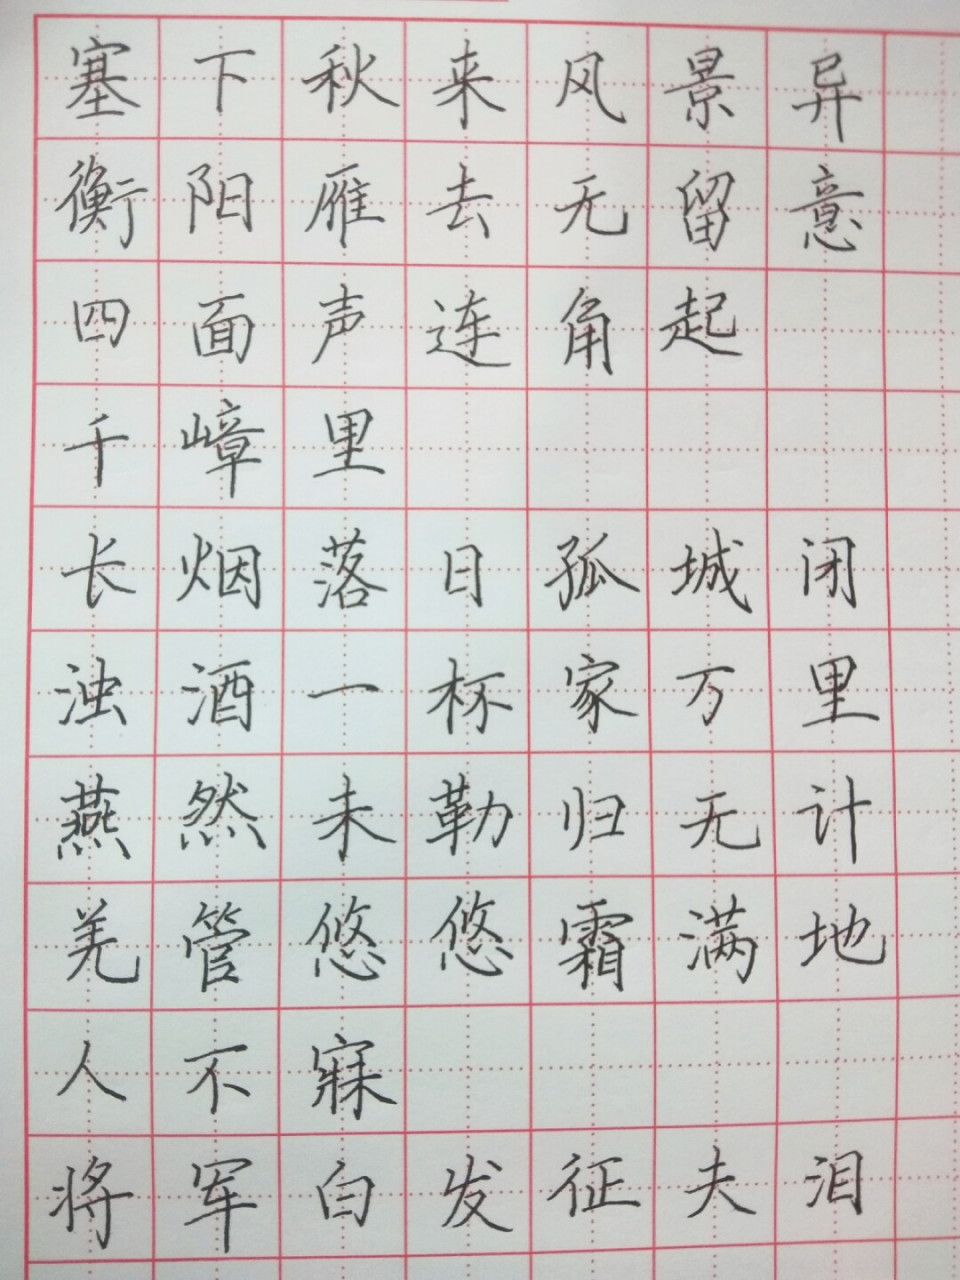 塞下秋来风景异
衡阳雁去无留意
四面声连角起
千嶂里
长烟落日孤城闭
浊酒一杯家万里
燕然未勒归无计
羌管悠悠霜满地
人不寐
将军白发征夫泪